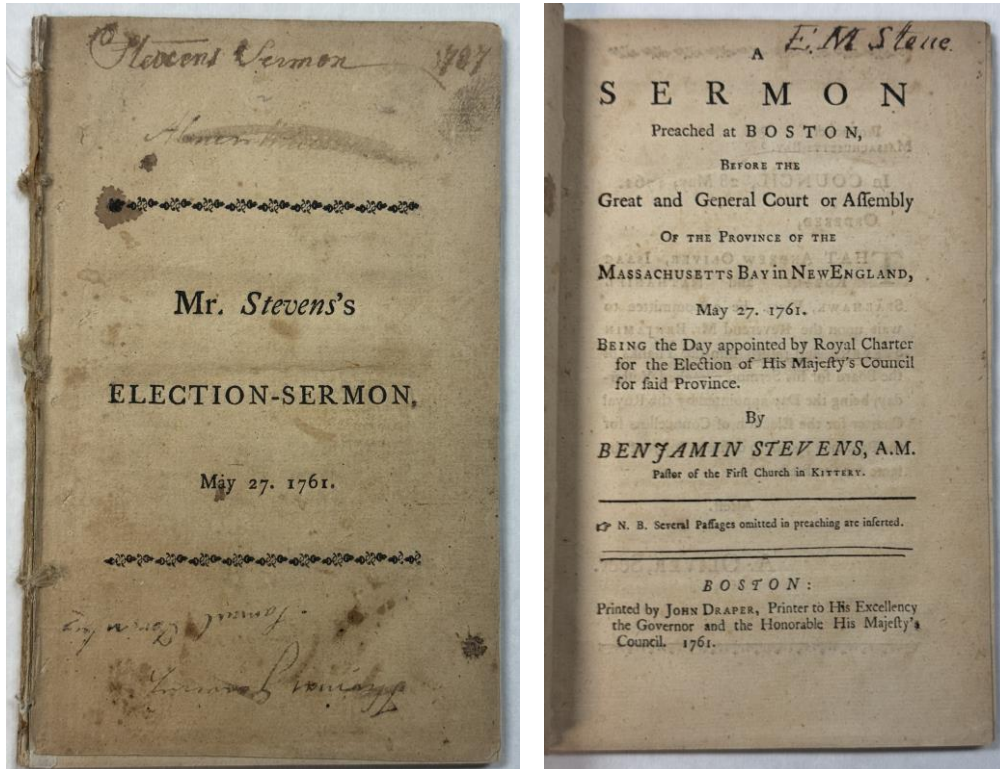 Stevens Sermon
Mr. Stevens's
ELECTION-SERMON,
May 27. 1761.
Samuel
E. M Stone.
A
SERMON
Preached at BOSTON,
BEFORE THE
Great and General Court or Aſſembly
OF THE PROVINCE OF THE
MASSACHUSETTS BAY in NEWENGLAND,
May 27. 1761.
BEING the Day appointed by Royal Charter
for the Election of His Majeſty's Council
for ſaid Province.
By
BENJAMIN STEVENS, A.M.
Paſtor of the Firſt Church in KITTERY.
☞ N. B. Several Paſſages omitted in preaching are inſerted.
BOSTON:
Printed by JOHN DRAPER, Printer to His Excellency
the Governor and the Honorable His Majeſty's
Council. 1761.